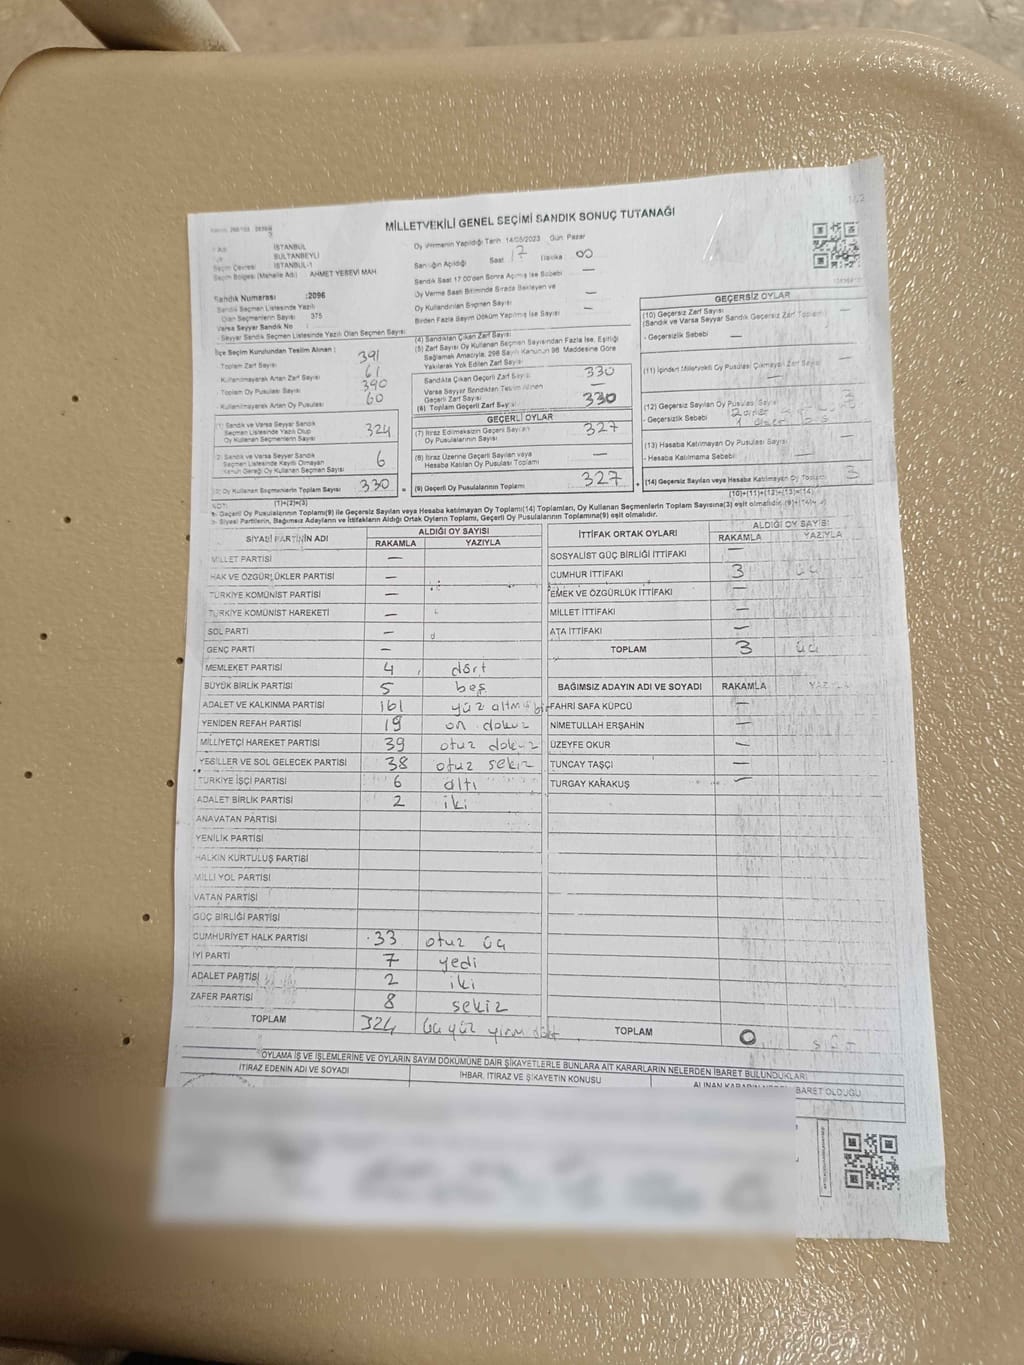 MİLLETVEKİLİ GENEL SEÇİMİ SANDIK SONUÇ TUTANAĞI
İSTANBUL
SULTANBEYLİ
Seçim Çevresi İSTANBUL-1
Seçim Bölgesi (Mahalle Adı) : AHMET YESEVİ MAH
Sandık Numarası :2096
Sandık Seçmen Listesinde Yazılı
Olan Seçmenlerin Sayısı 375
Varsa Seyyar Sandık No
Seyyar Sandık Seçmen Listesinde Yazılı Olan Seçmen Sayısı
Oy Vermenin Yapıldığı Tarih 14/05/2023 Gün Pazar
Sandığın Açıldığı Saat 17 Dakika 00
Sandık Saat 17:00'den Sonra Açılmış İse Sebebi —
Oy Verme Saati Bitiminde Sırada Bekleyen ve
Oy Kullandırılan Seçmen Sayısı —
Birden Fazla Sayım Döküm Yapılmış İse Sayısı —
İlçe Seçim Kurulundan Teslim Alınan ;
- Toplam Zarf Sayısı 391
- Kullanılmayarak Artan Zarf Sayısı 61
- Toplam Oy Pusulası Sayısı 390
- Kullanılmayarak Artan Oy Pusulası 60
(1) Sandık ve Varsa Seyyar Sandık
Seçmen Listesinde Yazılı Olup
Oy Kullanan Seçmenlerin Sayısı 324
(2) Sandık ve Varsa Seyyar Sandık
Seçmen Listesinde Kayıtlı Olmayan
Kanun Gereği Oy Kullanan Seçmen Sayısı 6
(3) Oy Kullanan Seçmenlerin Toplam Sayısı 330
(1)+(2)=(3)
(4) Sandıktan Çıkan Zarf Sayısı
(5) Zarf Sayısı Oy Kullanan Seçmen Sayısından Fazla İse, Eşitliği
Sağlamak Amacıyla, 298 Sayılı Kanunun 98. Maddesine Göre
Yakılarak Yok Edilen Zarf Sayısı
Sandıkta Çıkan Geçerli Zarf Sayısı 330
Varsa Seyyar Sandıktan Teslim Alınan
Geçerli Zarf Sayısı —
(6) Toplam Geçerli Zarf Sayısı 330
GEÇERLİ OYLAR
(7) İtiraz Edilmeksizin Geçerli Sayılan
Oy Pusulalarının Sayısı 327
(8) İtiraz Üzerine Geçerli Sayılan veya
Hesaba Katılan Oy Pusulası Toplamı —
(9) Geçerli Oy Pusulalarının Toplamı 327
GEÇERSİZ OYLAR
(10) Geçersiz Zarf Sayısı
(Sandık ve Varsa Seyyar Sandık Geçersiz Zarf Toplamı) —
- Geçersizlik Sebebi —
(11) İçinden Milletvekili Oy Pusulası Çıkmayan Zarf Sayısı
—
(12) Geçersiz Sayılan Oy Pusulası Sayısı 3
- Geçersizlik Sebebi
(13) Hesaba Katılmayan Oy Pusulası Sayısı —
- Hesaba Katılmama Sebebi —
(14) Geçersiz Sayılan veya Hesaba Katılmayan Oy Toplamı 3
(10)+(11)+(12)+(13)=(14)
NOT:
1- Geçerli Oy Pusulalarının Toplamı(9) ile Geçersiz Sayılan veya Hesaba katılmayan Oy Toplamı(14) Toplamları, Oy Kullanan Seçmenlerin Toplam Sayısına(3) eşit olmalıdır. (9)+(14)=(3)
2- Siyasi Partilerin, Bağımsız Adayların ve İttifakların Aldığı Ortak Oyların Toplamı, Geçerli Oy Pusulalarının Toplamına(9) eşit olmalıdır.
SİYASİ PARTİNİN ADI ALDIĞI OY SAYISI
RAKAMLA YAZIYLA
MİLLET PARTİSİ —
HAK VE ÖZGÜRLÜKLER PARTİSİ —
TÜRKİYE KOMÜNİST PARTİSİ —
TÜRKİYE KOMÜNİST HAREKETİ —
SOL PARTİ —
GENÇ PARTİ —
MEMLEKET PARTİSİ 4 dört
BÜYÜK BİRLİK PARTİSİ 5 beş
ADALET VE KALKINMA PARTİSİ 161 yüz altmış bir
YENİDEN REFAH PARTİSİ 19 on dokuz
MİLLİYETÇİ HAREKET PARTİSİ 39 otuz dokuz
YEŞİLLER VE SOL GELECEK PARTİSİ 38 otuz sekiz
TÜRKİYE İŞÇİ PARTİSİ 6 altı
ADALET BİRLİK PARTİSİ 2 iki
ANAVATAN PARTİSİ
YENİLİK PARTİSİ
HALKIN KURTULUŞ PARTİSİ
MİLLİ YOL PARTİSİ
VATAN PARTİSİ
GÜÇ BİRLİĞİ PARTİSİ
CUMHURİYET HALK PARTİSİ 33 otuz üç
İYİ PARTİ 7 yedi
ADALET PARTİSİ 2 iki
ZAFER PARTİSİ 8 sekiz
TOPLAM 324 üç yüz yirmi dört
İTTİFAK ORTAK OYLARI ALDIĞI OY SAYISI
RAKAMLA YAZIYLA
SOSYALİST GÜÇ BİRLİĞİ İTTİFAKI —
CUMHUR İTTİFAKI 3 üç
EMEK VE ÖZGÜRLÜK İTTİFAKI —
MİLLET İTTİFAKI —
ATA İTTİFAKI —
TOPLAM 3 üç
BAĞIMSIZ ADAYIN ADI VE SOYADI RAKAMLA YAZIYLA
FAHRİ SAFA KÜPCÜ —
NİMETULLAH ERŞAHİN —
ÜZEYFE OKUR —
TUNCAY TAŞÇI —
TURGAY KARAKUŞ —
TOPLAM 0 sıfır
OYLAMA İŞ VE İŞLEMLERİNE VE OYLARIN SAYIM DÖKÜMÜNE DAİR ŞİKAYETLERLE BUNLARA AİT KARARLARIN NELERDEN İBARET BULUNDUKLARI
İTİRAZ EDENİN ADI VE SOYADI İHBAR, İTİRAZ VE ŞİKAYETİN KONUSU ALINAN KARARIN İBARET OLDUĞU